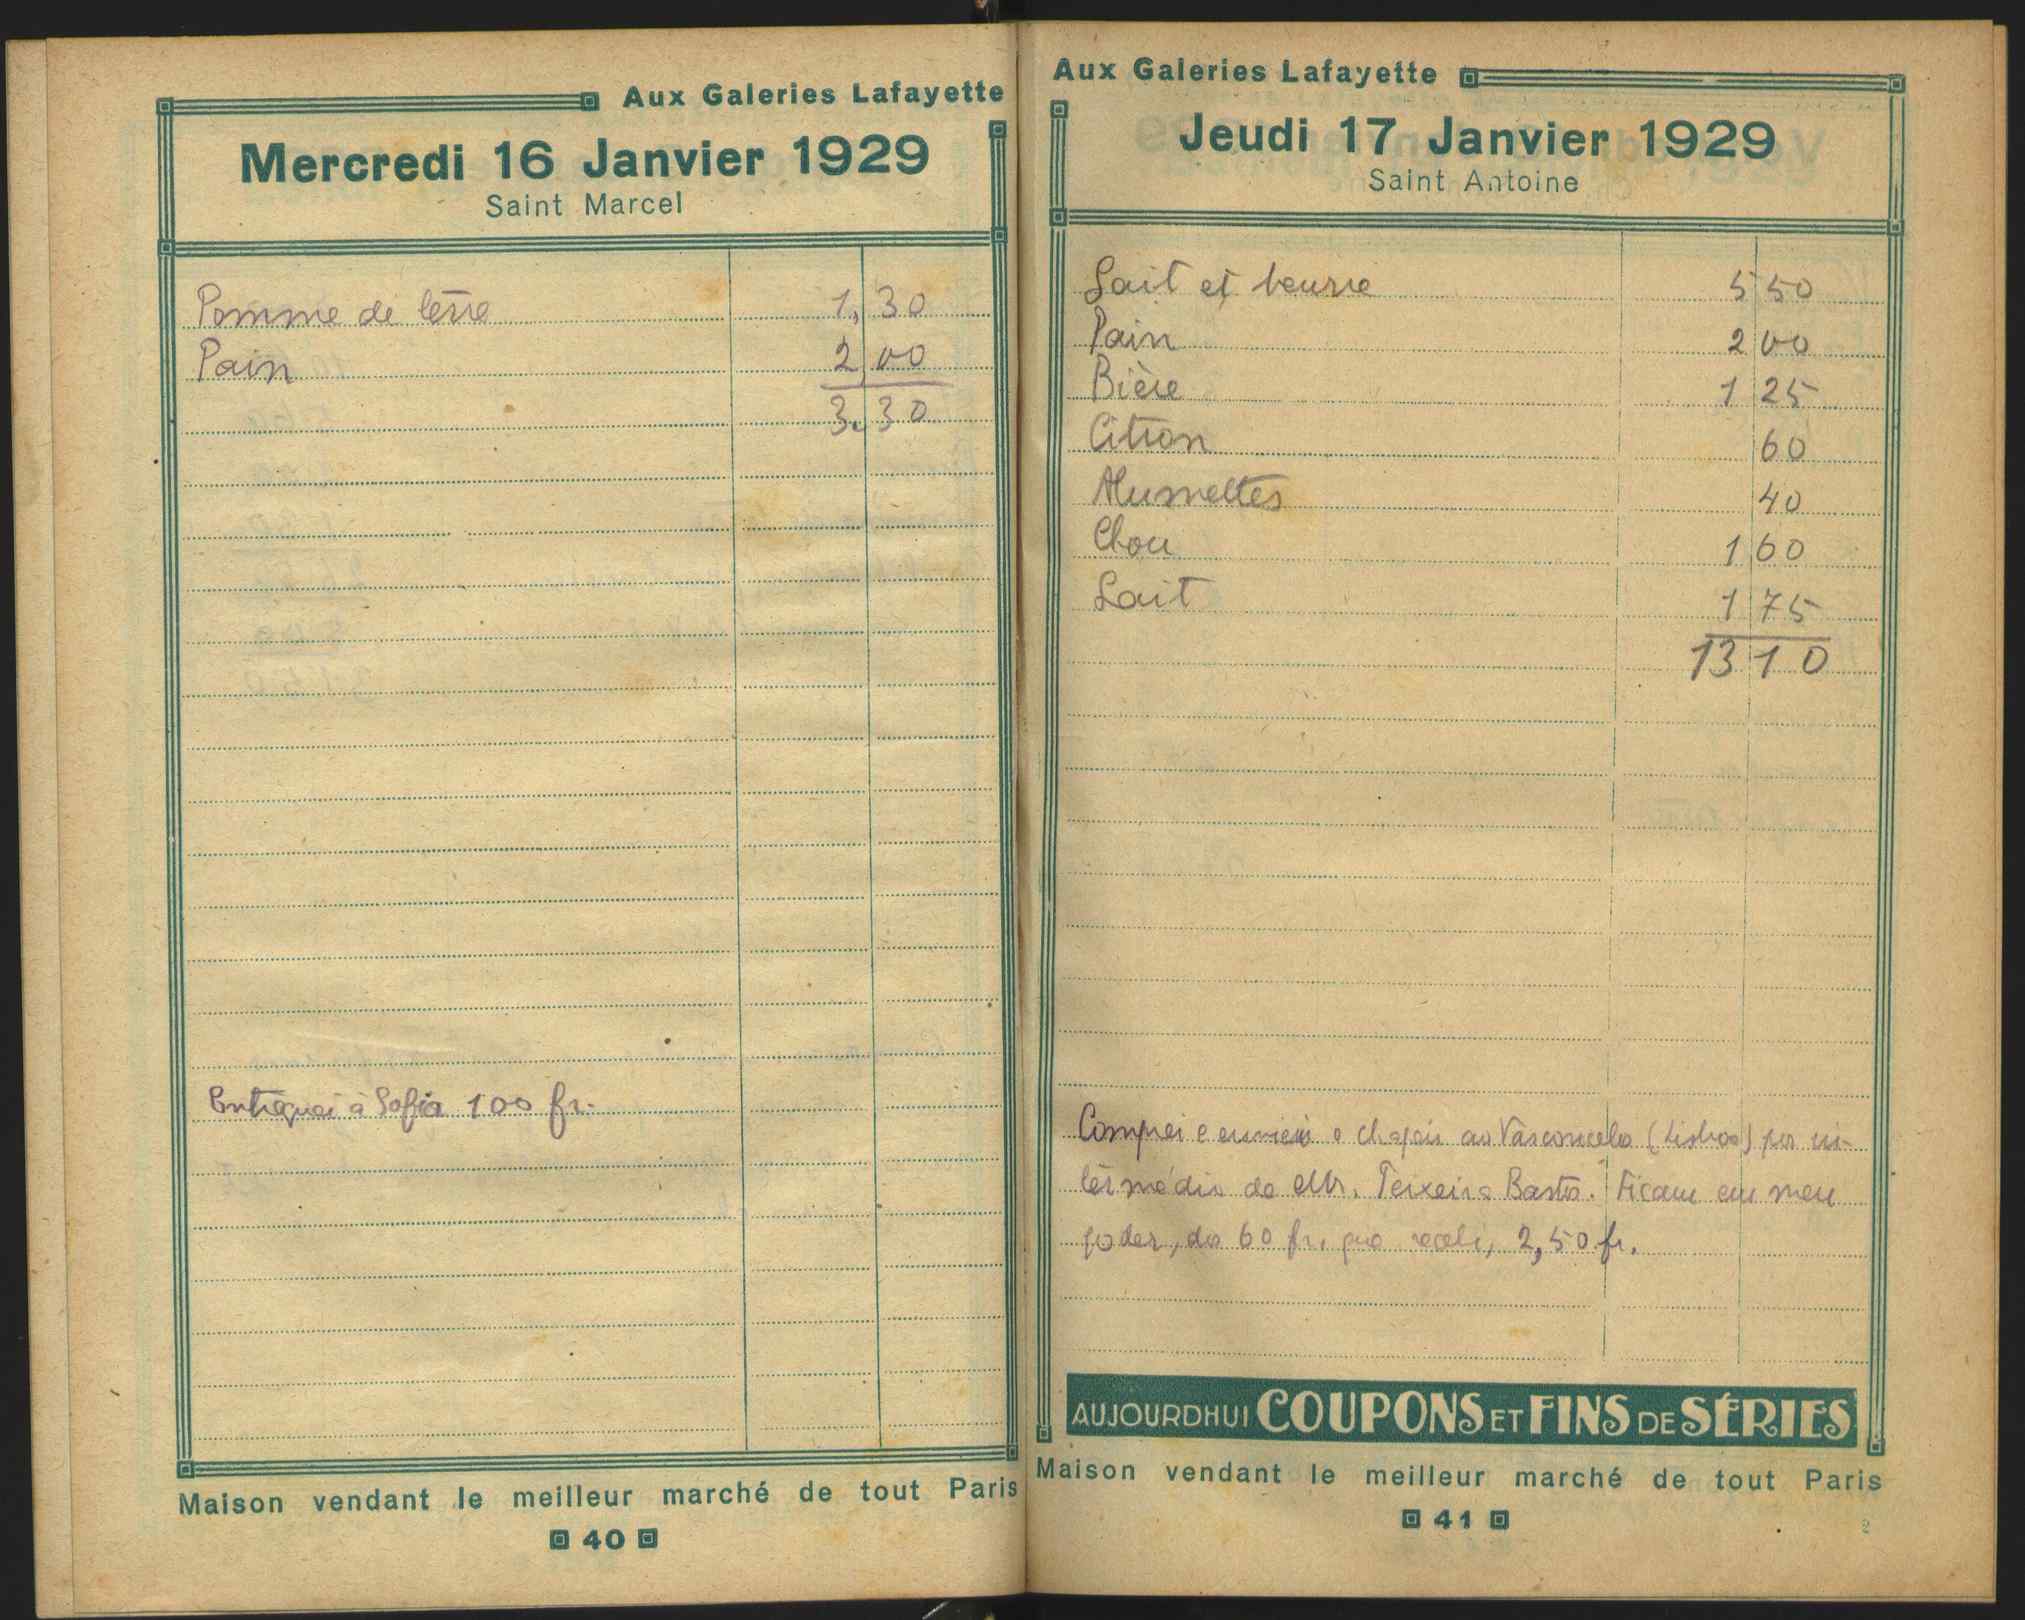 Aux Galeries Lafayette
Mercredi 16 Janvier 1929
Saint Marcel
Pomme de terre 1,30
Pain 2 00
3.30
Entreguei à Sofia 100 fr.
Maison vendant le meilleur marché de tout Paris
40
Aux Galeries Lafayette
Jeudi 17 Janvier 1929
Saint Antoine
Lait et beurre 5 50
Pain 2 00
Bière 1 25
Citron 60
Alumettes 40
Chou 1 60
Lait 1 75
13 10
Comprei e enviei o chapéu ao Vasconcelos (Lisboa) por in-
termédio do Mr. Teixeira Basto. Ficam em meu
poder, dos 60 fr. que recebi, 2,50 fr.
AUJOURDHUI COUPONS ET FINS DE SÉRIES
Maison vendant le meilleur marché de tout Paris
41
2